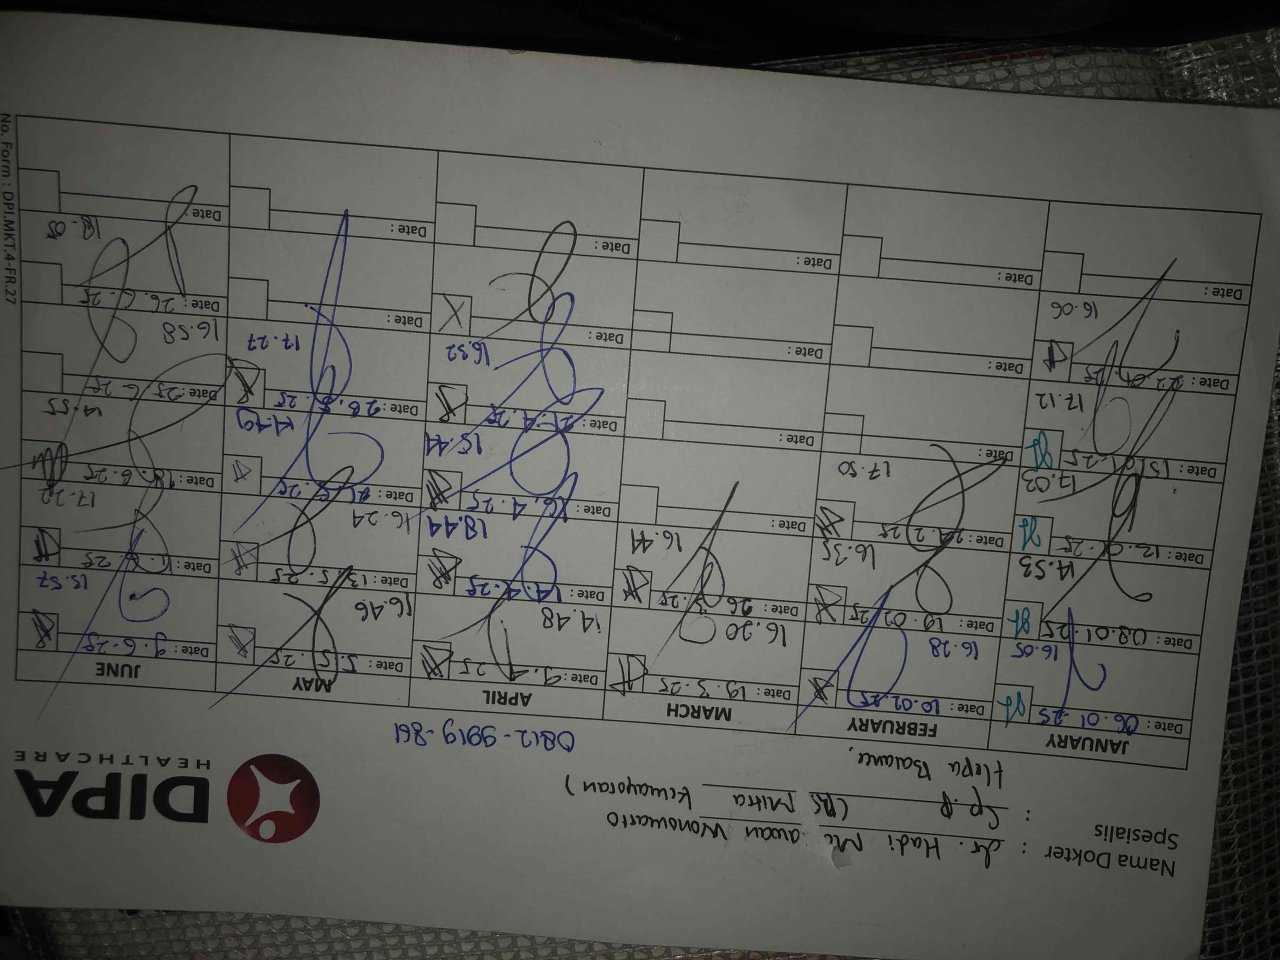 Nama Dokter : dr. Hadi
Spesialis : Sp.P (RS Mitra Kemayoran)
Hepa Balance,
0812-9919-861
DIPA
HEALTHCARE
JANUARY
Date : 06.01.25
16.05
Date : 08.01.25
14.53
Date : 13.01.25
17.03
Date : 15.01.25
17.12
Date : 22.01.25
16.06
Date :
FEBRUARY
Date : 10.02.25
16.28
Date : 19.02.25
16.35
Date : 24.2.25
17.50
Date :
Date :
Date :
MARCH
Date : 19.3.25
16.20
Date : 26.3.25
16.41
Date :
Date :
Date :
Date :
APRIL
Date : 9.4.25
14.48
Date : 14.4.25
18.44
Date : 16.4.25
15.44
Date : 21.4.25
16.32
Date :
Date :
MAY
Date : 5.5.25
16.46
Date : 13.5.25
16.24
Date : 21.5.25
Date : 28.5.25
17.27
Date :
Date :
JUNE
Date : 9.6.25
15.57
Date : 11.6.25
17.22
Date : 18.6.25
14.55
Date : 25.6.25
16.58
Date : 26.6.25
18.05
Date :
No. Form : DPI.MKT.4-FR.27